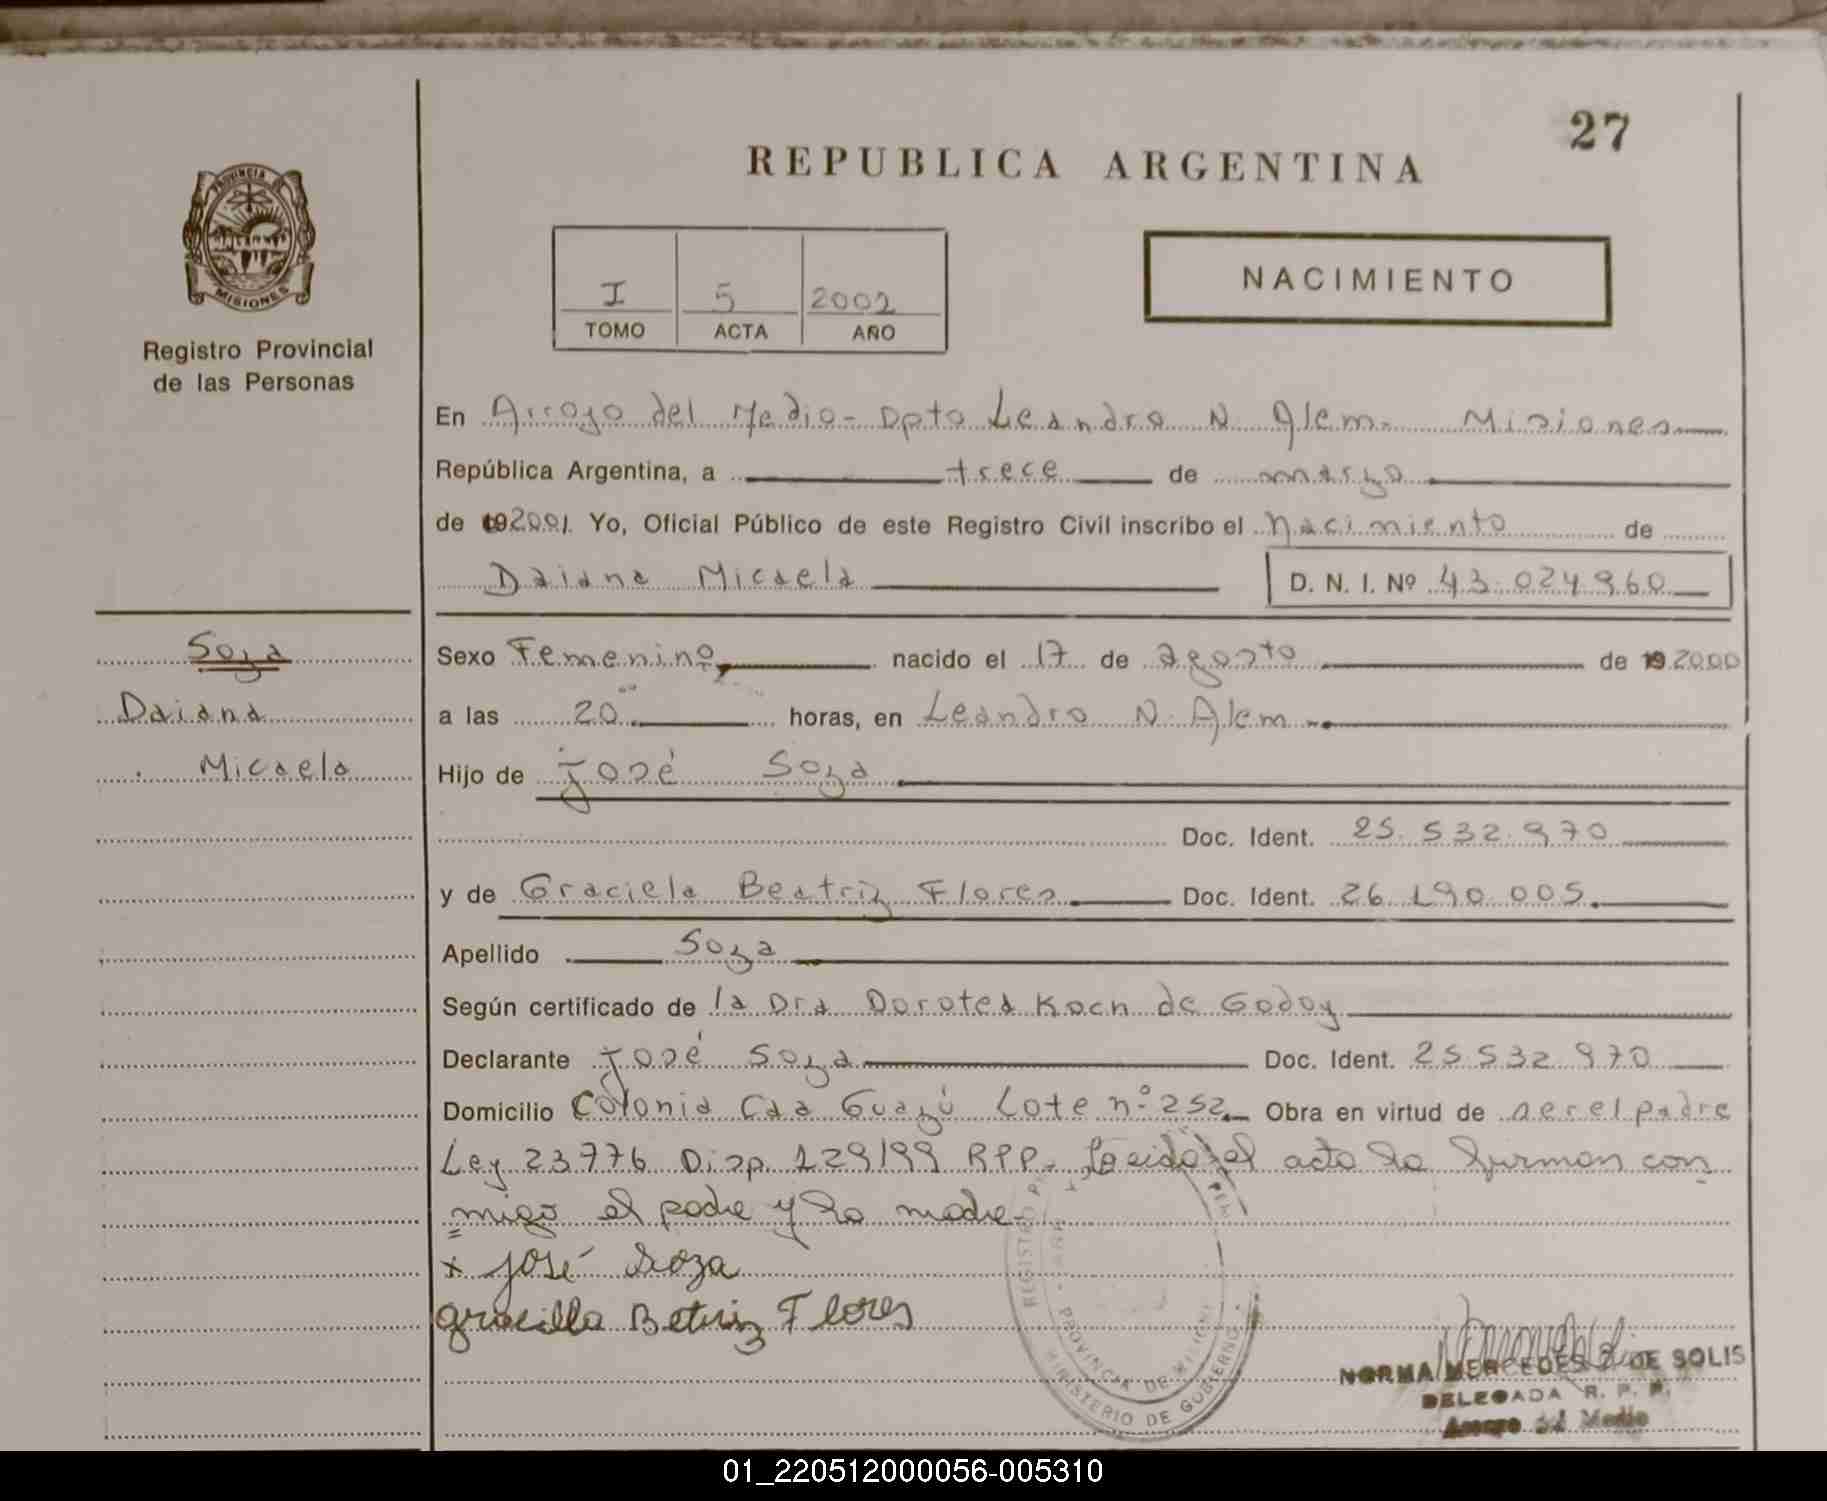 27
REPUBLICA ARGENTINA
PROVINCIA DE
MISIONES
Registro Provincial
de las Personas
I 5 2002
TOMO ACTA AÑO
NACIMIENTO
En Arroyo del Medio - Dpto Leandro N. Alem. Misiones
República Argentina, a trece de marzo
de 192001. Yo, Oficial Público de este Registro Civil inscribo el Nacimiento de
Daiana Micaela D. N. I. Nº 43.024.960
Soza
Daiana
Micaela
Sexo Femenino, nacido el 17 de agosto de 19 2000
a las 20 horas, en Leandro N. Alem
Hijo de José Soza
Doc. Ident. 25.532.970
y de Graciela Beatriz Flores Doc. Ident. 26.190.005.
Apellido Soza
Según certificado de la Dra Dorotea Koch de Godoy
Declarante José Soza Doc. Ident. 25.532.970
Domicilio Colonia Caa Guazú Lote nº 252 Obra en virtud de ser el padre
Ley 23776 Disp. 129/99 RPP. Leida el acta la firman con
migo el padre y la madre
x José Soza
Graciella Betriz Flores
REGISTRO
PROVINCIA DE MISIONES
MINISTERIO DE GOBIERNO
NORMA MERCEDES DE SOLIS
DELEGADA R. P. P.
Arroyo del Medio
01_220512000056-005310